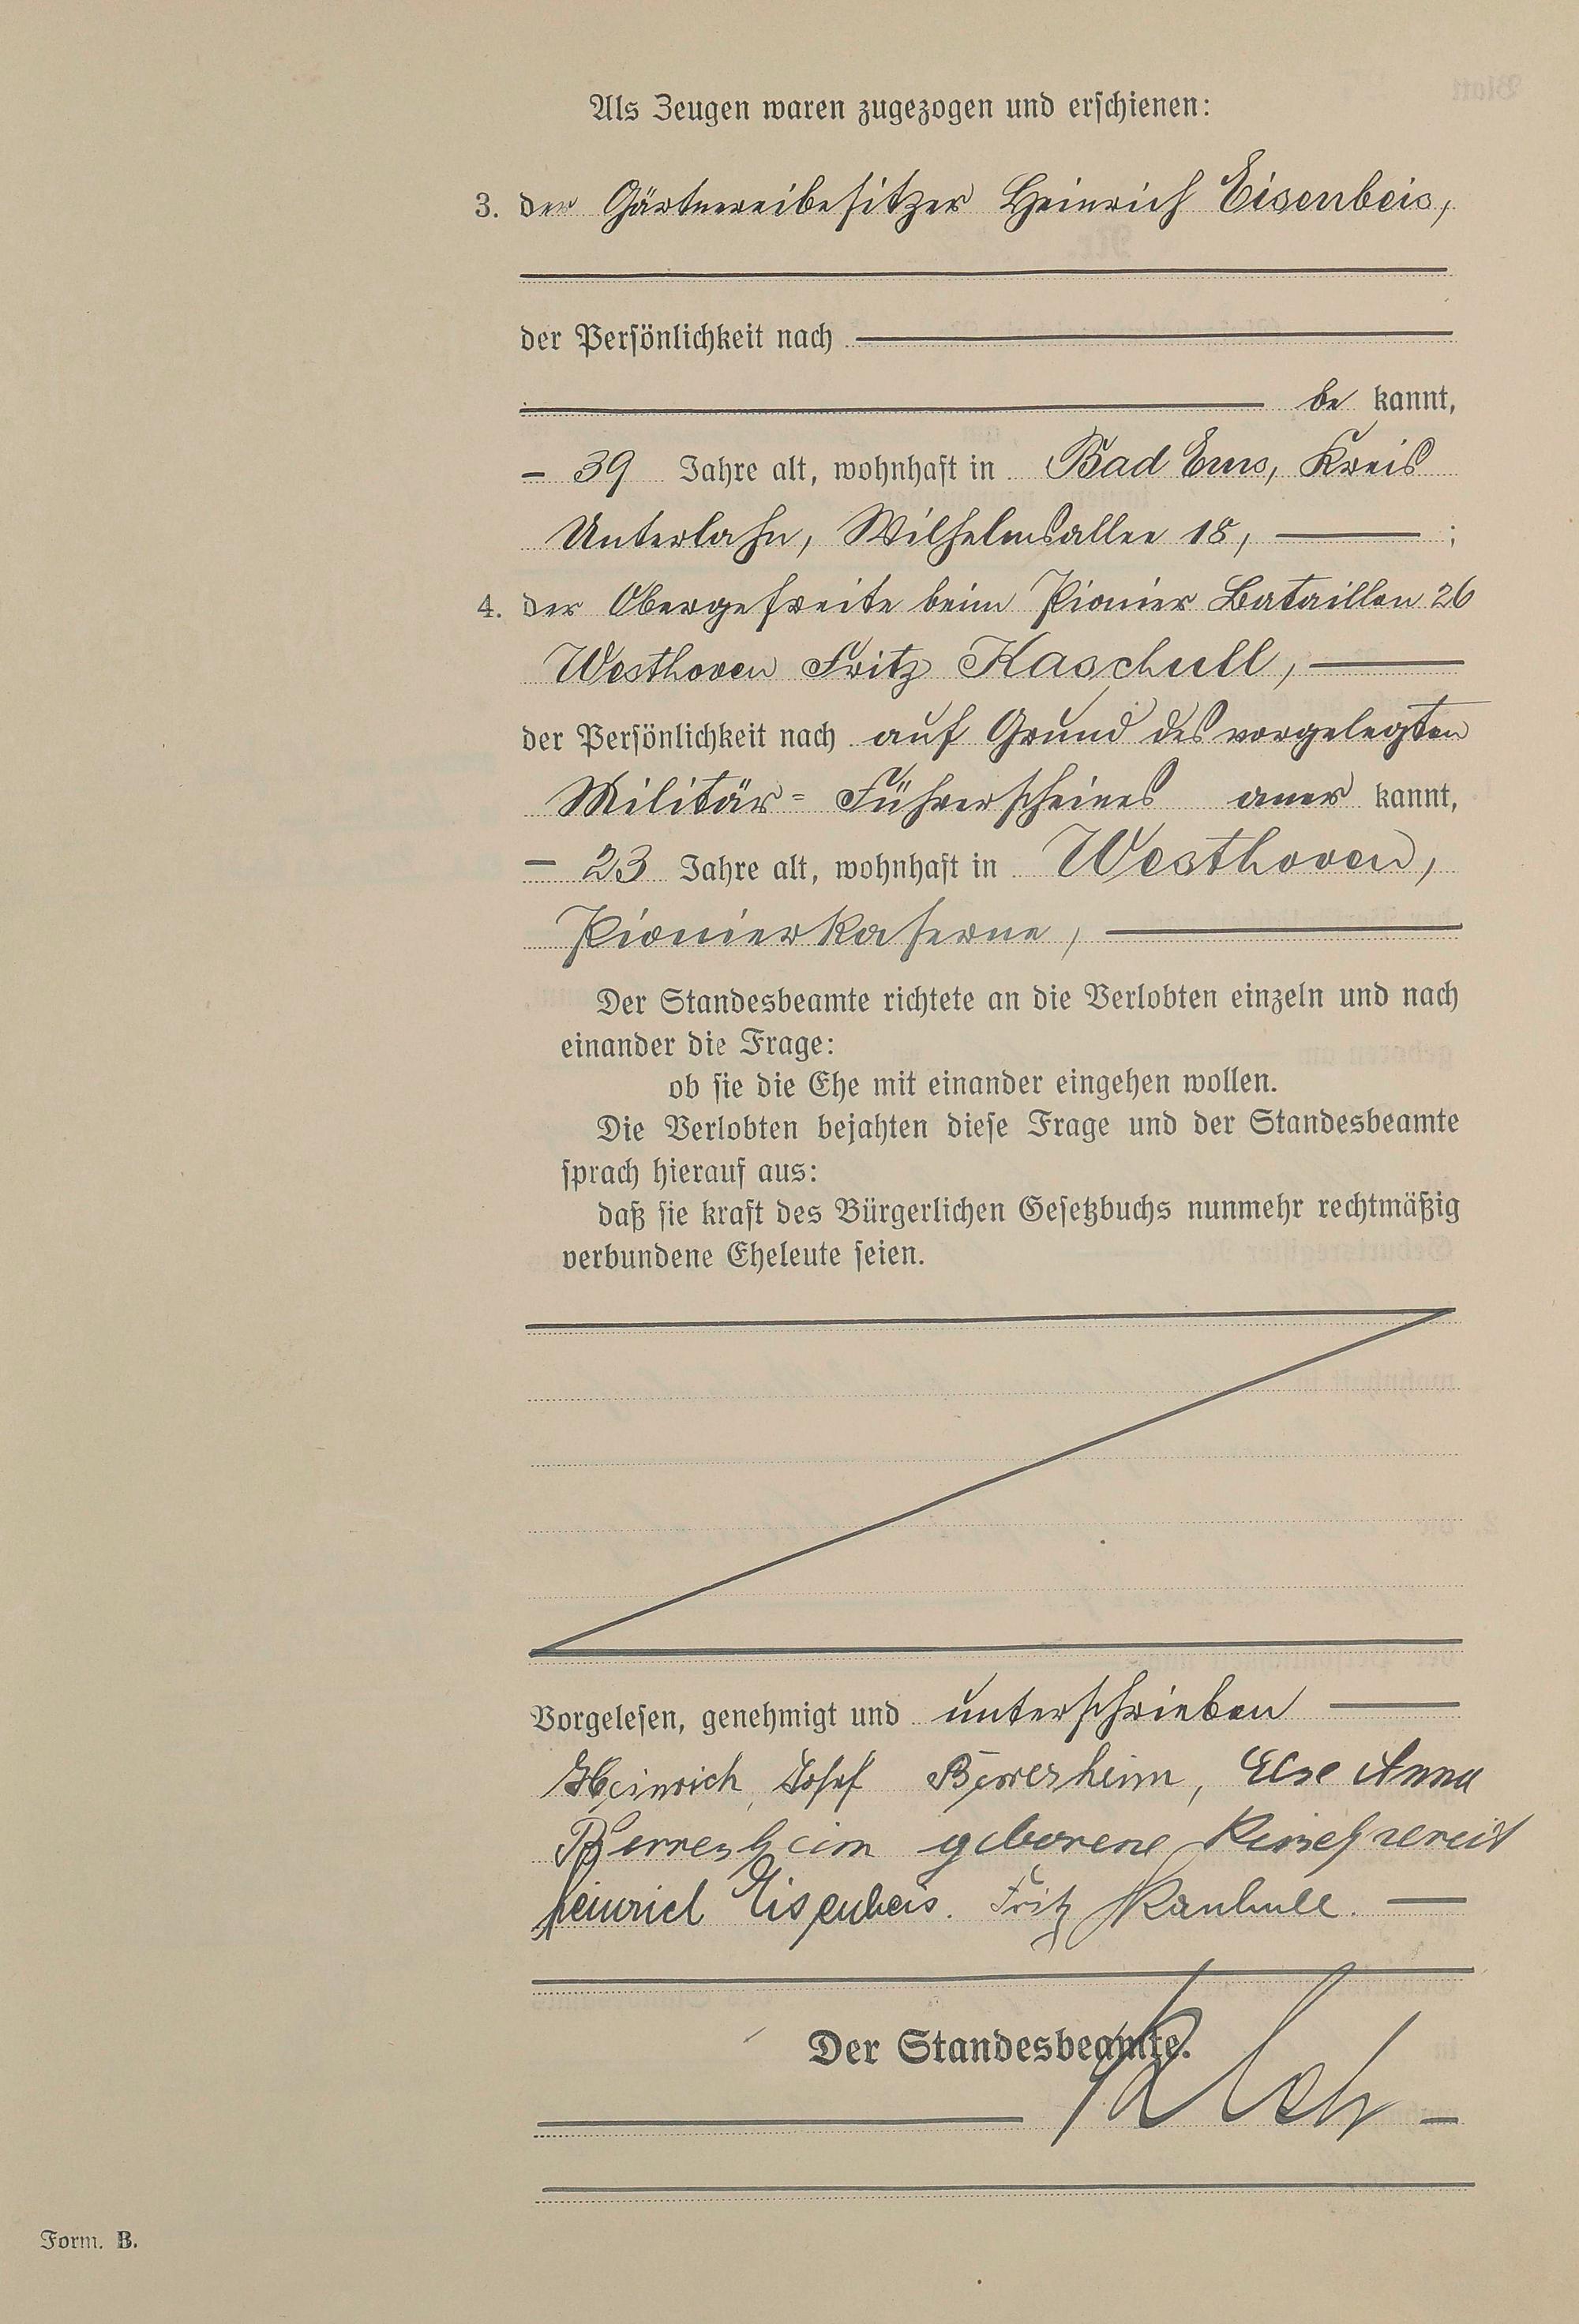 Als Zeugen waren zugezogen und erschienen:
3. der Gärtnereibesitzer Heinrich Eisenbeis,
der Persönlichkeit nach
be kannt,
– 39 Jahre alt, wohnhaft in Bad Ems, Kreis
Unterlahn, Wilhelmsallee 18, ;
4. der Obergefreite beim Pionier Bataillon 26
Westhoven Fritz Kaschull,
der Persönlichkeit nach auf Grund des vorgelegten
Militär= Führerscheines aner kannt,
– 23 Jahre alt, wohnhaft in Westhoven,
Pionierkaserne,
Der Standesbeamte richtete an die Verlobten einzeln und nach
einander die Frage:
ob sie die Ehe mit einander eingehen wollen.
Die Verlobten bejahten diese Frage und der Standesbeamte
sprach hierauf aus:
daß sie kraft des Bürgerlichen Gesetzbuchs nunmehr rechtmäßig
verbundene Eheleute seien.
Vorgelesen, genehmigt und unterschrieben
Heinrich Josef Berresheim, Else Anna
Berresheim geborene
Heinrich Eisenbeis. Fritz Kaschull.
Der Standesbeamte.
Form. B.